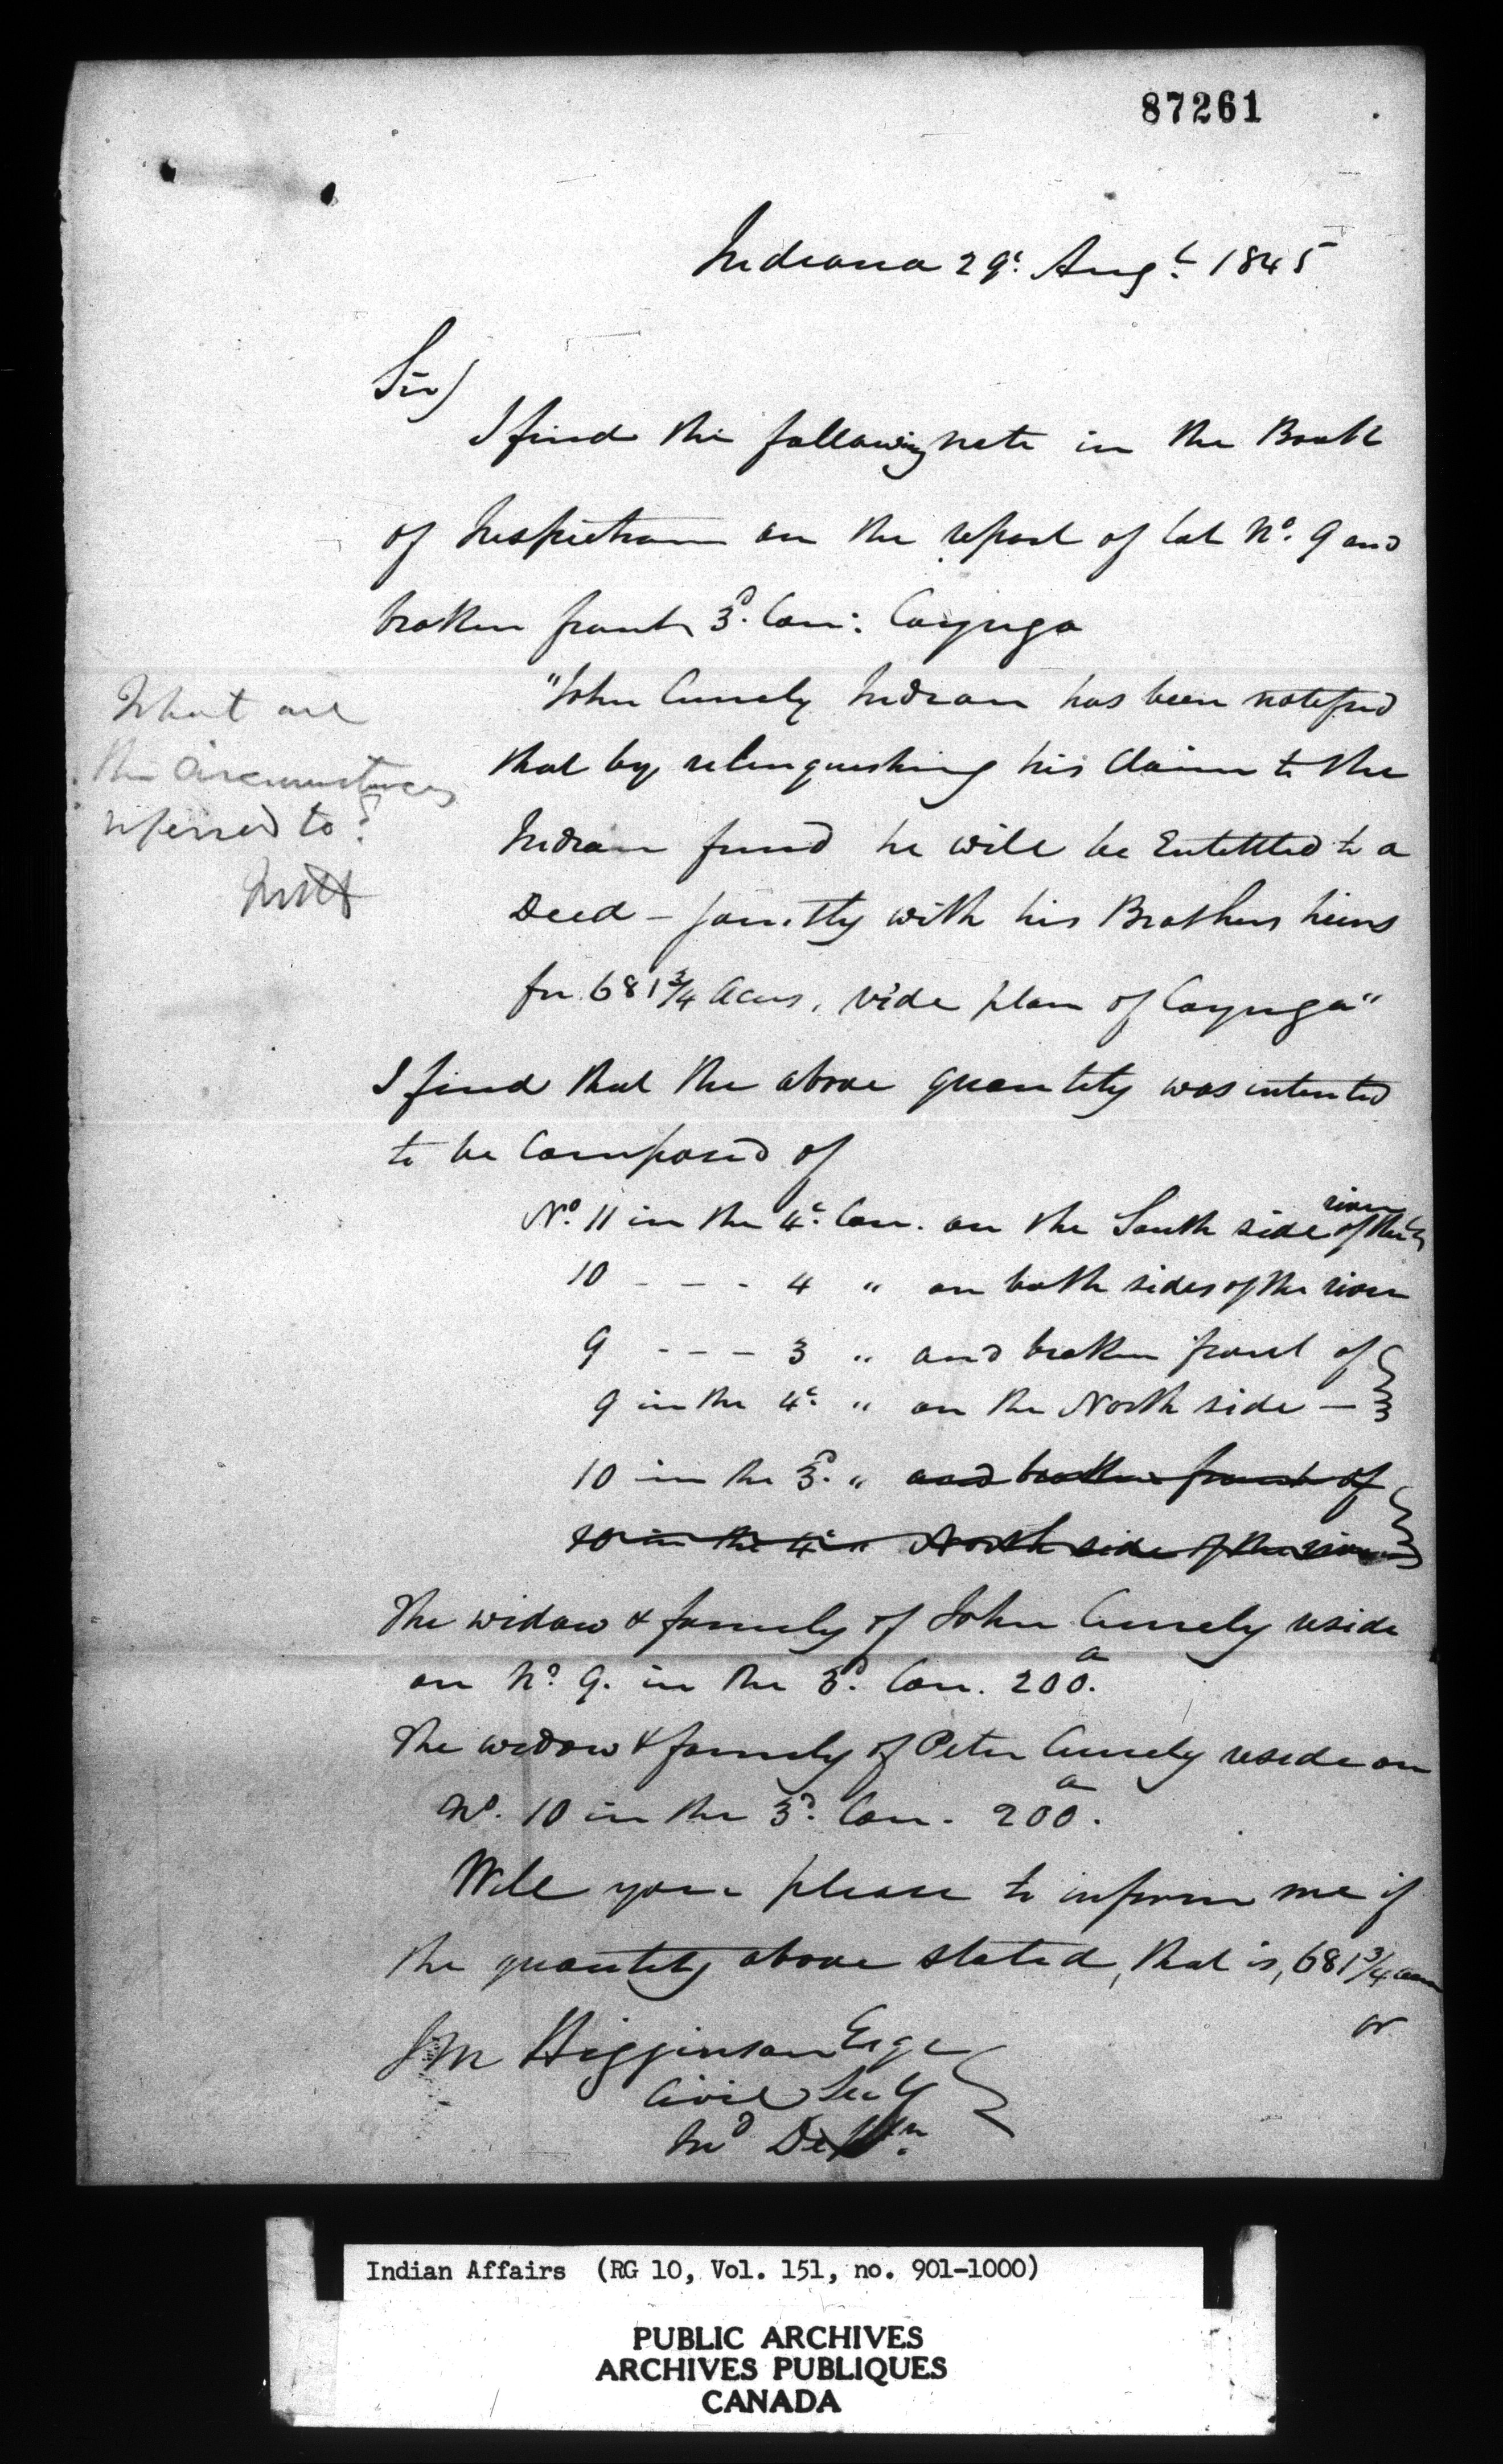 87261
Indiana 29th Augt. 1845
Sir)
I find the following note in the Book
of Inspection on the report of Lot No. 9 and
broken front 3d. Con: Cayuga
What are
the circumstances
referred to?
"John Cunely Indian has been notifed
that by relinquishing his Claim to the
Indian fund he will be Entittled to a
Deed – jointly with his Brothers heirs
for 681 3/4 Acres, vide plan of Cayuga"
I find that the above quantity was intented
to be Composed of
No. 11 in the 4th. Con. on the South side of the river
10 - - - 4 " on both sides of the river
9 - - - 3 " and broken front of
9 in the 4th. " on the North side –
10 in the 3d. " and broken front of
10 in the 4th " North side of the river
The widow & family of John Cunely reside
on No. 9. in the 3d. Con. 200a.
The widow & family of Peter Cunely reside on
No. 10 in the 3d. Con. 200a.
Will you please to inform me if
the quantity above stated, that is, 681 3/4 acres
or
J M Higginson Esqr
Civil Secy
Ind Deptm.
Indian Affairs (RG 10, Vol. 151, no. 901-1000)
PUBLIC ARCHIVES
ARCHIVES PUBLIQUES
CANADA